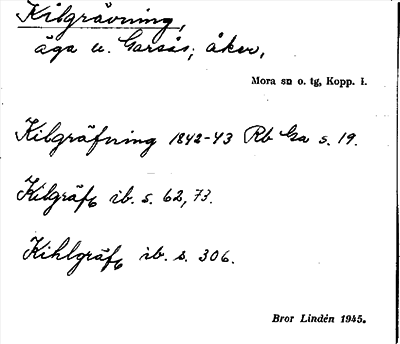 Kilgrävning,
äga u. Garsås; åker,
Mora sn o. tg, Kopp. l.
Kilgräfning 1842-43 Rb Ga s. 19.
Kilgräf ib. s. 62, 73.
Kihlgräf ib. s. 306.
Bror Lindén 1945.